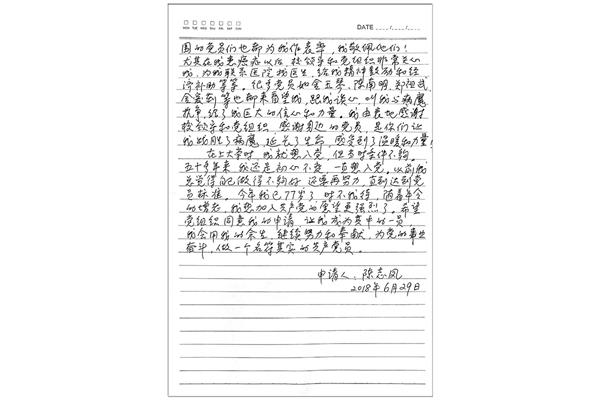 MON TUE WED THU FRI SAT SUN
DATE ..../..../....
围的党员们也都为我作表率,我敬佩他们!
尤其在我患癌症以后,校领导和党组织非常关心
我,为我联系医院找医生,给我精神鼓励和经
济补助等等。很多党员如金五琴、陈南明、郑阳武
金安利等也都来看望我,跟我谈心,叫我与病魔
抗争,给了我巨大的信心和力量。我由衷地感谢
校领导和党组织,感谢周边的党员,是你们让
我战胜了病魔,延长了生命,感受到了温暖和力量!
在上大学时,我就想入党,但当时条件不够。
五十多年来,我还是初心不变,一直想入党。以前我
总觉得自己做得不够好,还要再努力,直到达到党
员标准。今年我已77岁了,时不我待,随着年令
的增老,我想加入共产党的愿望更强烈了。希望
党组织同意我的申请,让我成为其中的一员,
我会用我的余生,继续努力和奉献,为党的事业
奋斗,做一个名符其实的共产党员。
申请人:陈志凤
2018年6月29日